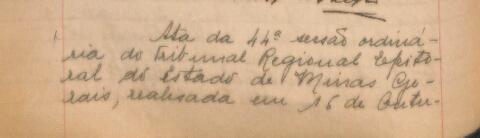 Ata da 44ª sessão ordiná-
ria do Tribunal Regional Eleito-
ral do Estado de Minas Ge-
rais, realisada em 16 de Outu-